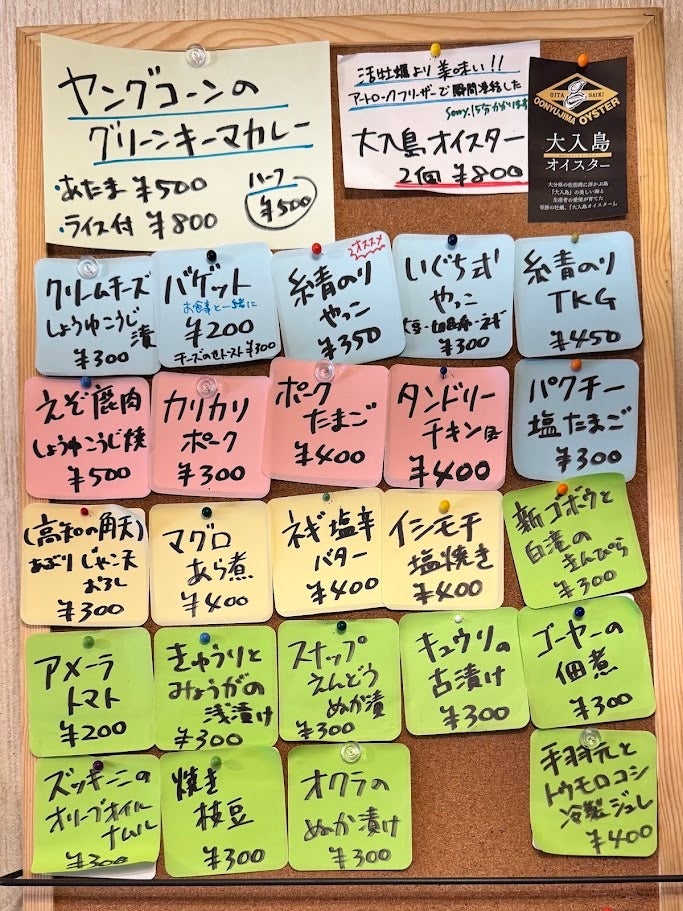 ヤングコーンの
グリーンキーマカレー
・あたま ¥500
・ライス付 ¥800
ハーフ
¥500
活牡蠣より美味い!!
アートロックフリーザーで瞬間凍結した
Sorry.15分かかります
大入島オイスター
2個 ¥800
OITA SAIKI
OONYUJIMA OYSTER
大入島
オイスター
大分県の佐伯湾に浮かぶ島
「大入島」の美しい海と
生産者の愛情が育てた
奇跡の牡蠣、「大入島オイスター」。
クリームチーズ
しょうゆこうじ
漬
¥300
バゲット
お食事と一緒に
¥200
チーズのせトースト¥300
オススメ
糸青のり
やっこ
¥350
いぐち式
やっこ
¥300
糸青のり
TKG
¥450
えぞ鹿肉
しょうゆこうじ焼
¥500
カリカリ
ポーク
¥300
ポーク
たまご
¥400
タンドリー
チキン
¥400
パクチー
塩たまご
¥300
(高知の角天)
あぶりじゃこ天
おろし
¥300
マグロ
あら煮
¥400
ネギ塩辛
バター
¥400
イシモチ
塩焼き
¥400
新ゴボウと
白滝の
きんぴら
¥300
アメーラ
トマト
¥200
きゅうりと
みょうがの
浅漬け
¥300
スナップ
えんどう
ぬか漬
¥300
キュウリの
古漬け
¥300
ゴーヤーの
佃煮
¥300
ズッキーニの
オリーブオイル
ナムル
¥300
焼き
枝豆
¥300
オクラの
ぬか漬け
¥300
手羽元と
トウモロコシ
冷製ジュレ
¥400